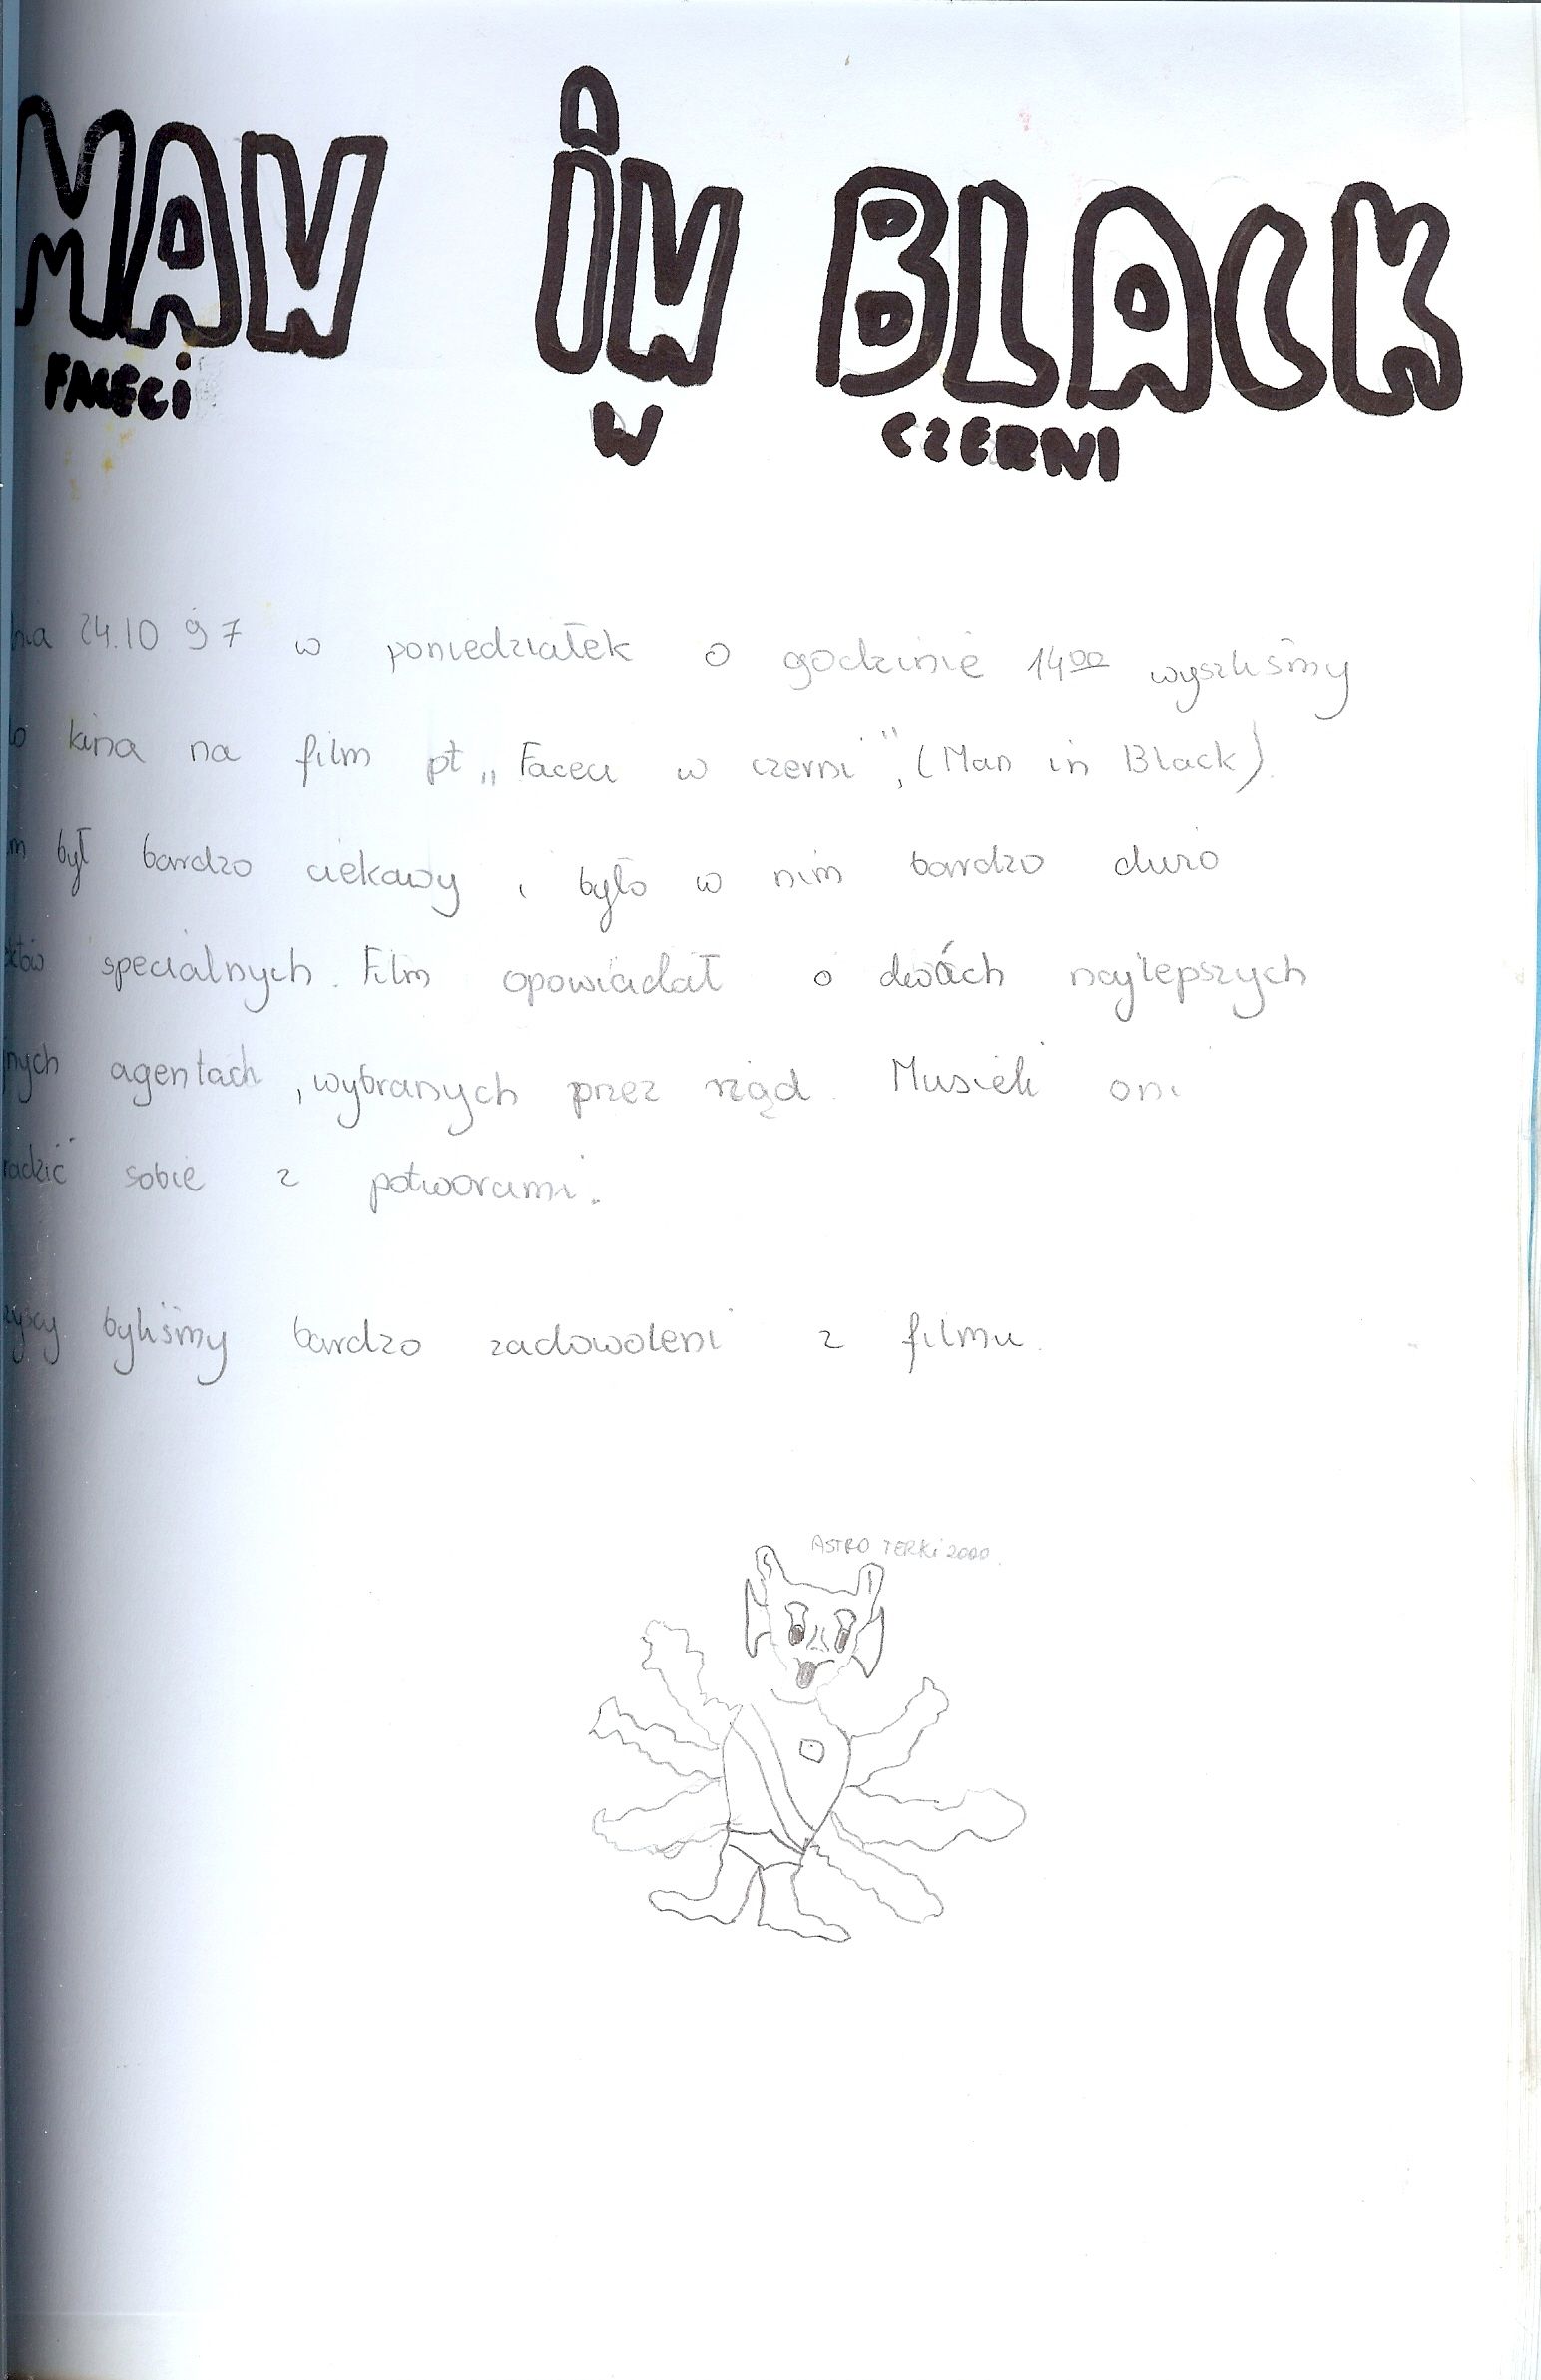 MAN iN BLACK
FACECi W CZERNI
nia 24.10 97 w poniedziałek o godzinie 14⁰⁰ wyszliśmy
do kina na film pt „Faceci w czerni”, (Man in Black).
lm był bardzo ciekawy i było w nim bardzo dużo
ektów specialnych. Film opowiadał o dwóch najlepszych
jnych agentach, wybranych przez rząd. Musieli oni
radzić sobie z potworami.
zyscy byliśmy bardzo zadowoleni z filmu.
ASTRO TERKi 2000.